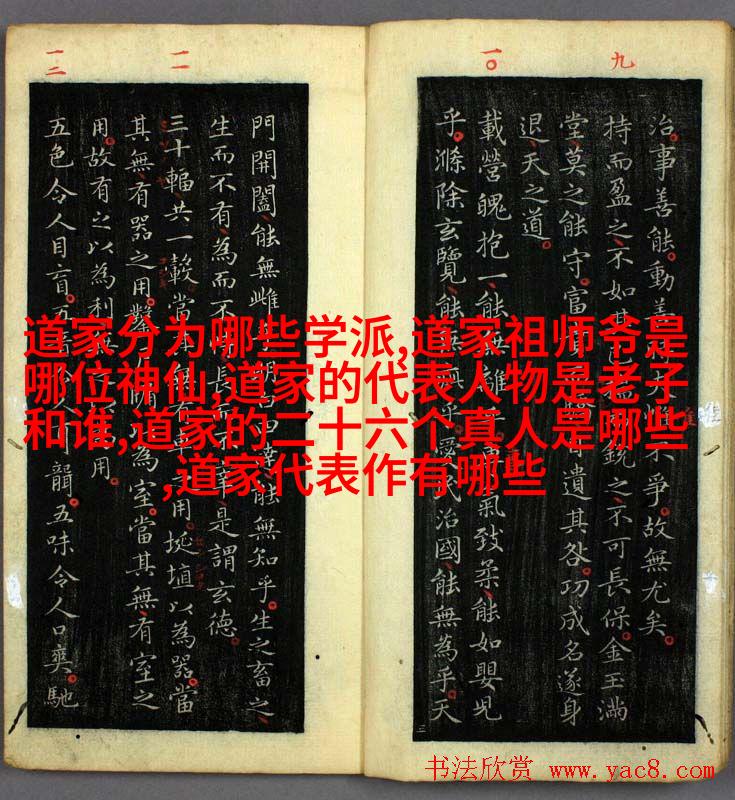 九
一〇
治事善能動善夫唯不爭故無尤矣
持而盈之不如其已銳之不可長保金玉滿
堂莫之能守富自遺其咎功成名遂身
退天之道
載營魄抱一能無離氣致柔能如嬰兒
乎滌除玄覽能無疵乎愛民治國能無為乎天
一一
一二
門開闔能無雌達能無知乎生之畜之
生而不有為而不長是謂玄德
三十輻共一轂當其無有車之用埏埴以為器當
其無有器之用鑿戶牖以為室當其無有室之
用故有之以為利用
五色令人目盲五音人耳聾五味令人口爽馳
道家分为哪些学派,道家祖师爷是
哪位神仙,道家的代表人物是老子
和谁,道家的二十六个真人是哪些
,道家代表作有哪些
书法欣赏 www.yac8.com